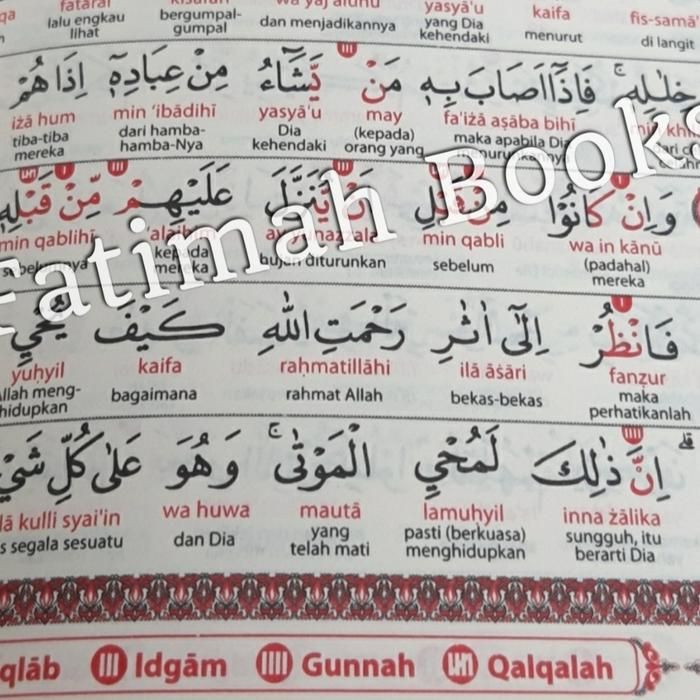 fatarāl yasyā'u kaifa fis-samā'
lalu engkau lihat bergumpal-gumpal dan menjadikannya yang Dia kehendaki menurut di langit
خِلٰلِهٖۚ فَاِذَآ اَصَابَ بِهٖ مَنْ يَّشَاۤءُ مِنْ عِبَادِهٖٓ اِذَا هُمْ
fa'iżā aṣāba bihī may yasyā'u min 'ibādihī iżā hum
maka apabila Dia (kepada) orang yang Dia kehendaki dari hamba-hamba-Nya tiba-tiba mereka
وَاِنْ كَانُوْا مِنْ قَبْلِ اَنْ يُّنَزَّلَ عَلَيْهِمْ مِّنْ قَبْلِهٖ
wa in kānū min qabli ay yunazzala 'alaihim min qablihī
(padahal) mereka sebelum hujan diturunkan kepada mereka sebelumnya
فَانْظُرْ اِلٰٓى اٰثٰرِ رَحْمَتِ اللّٰهِ كَيْفَ يُحْيِ
fanẓur ilā āṡāri raḥmatillāhi kaifa yuḥyil
maka perhatikanlah bekas-bekas rahmat Allah bagaimana Allah meng-hidupkan
اِنَّ ذٰلِكَ لَمُحْيِ الْمَوْتٰىۚ وَهُوَ عَلٰى كُلِّ شَيْ
inna żālika lamuḥyil mautā wa huwa lā kulli syai'in
sungguh, itu berarti Dia pasti (berkuasa) menghidupkan yang telah mati dan Dia s segala sesuatu
qlāb Idgām Gunnah Qalqalah
Fatimah Books